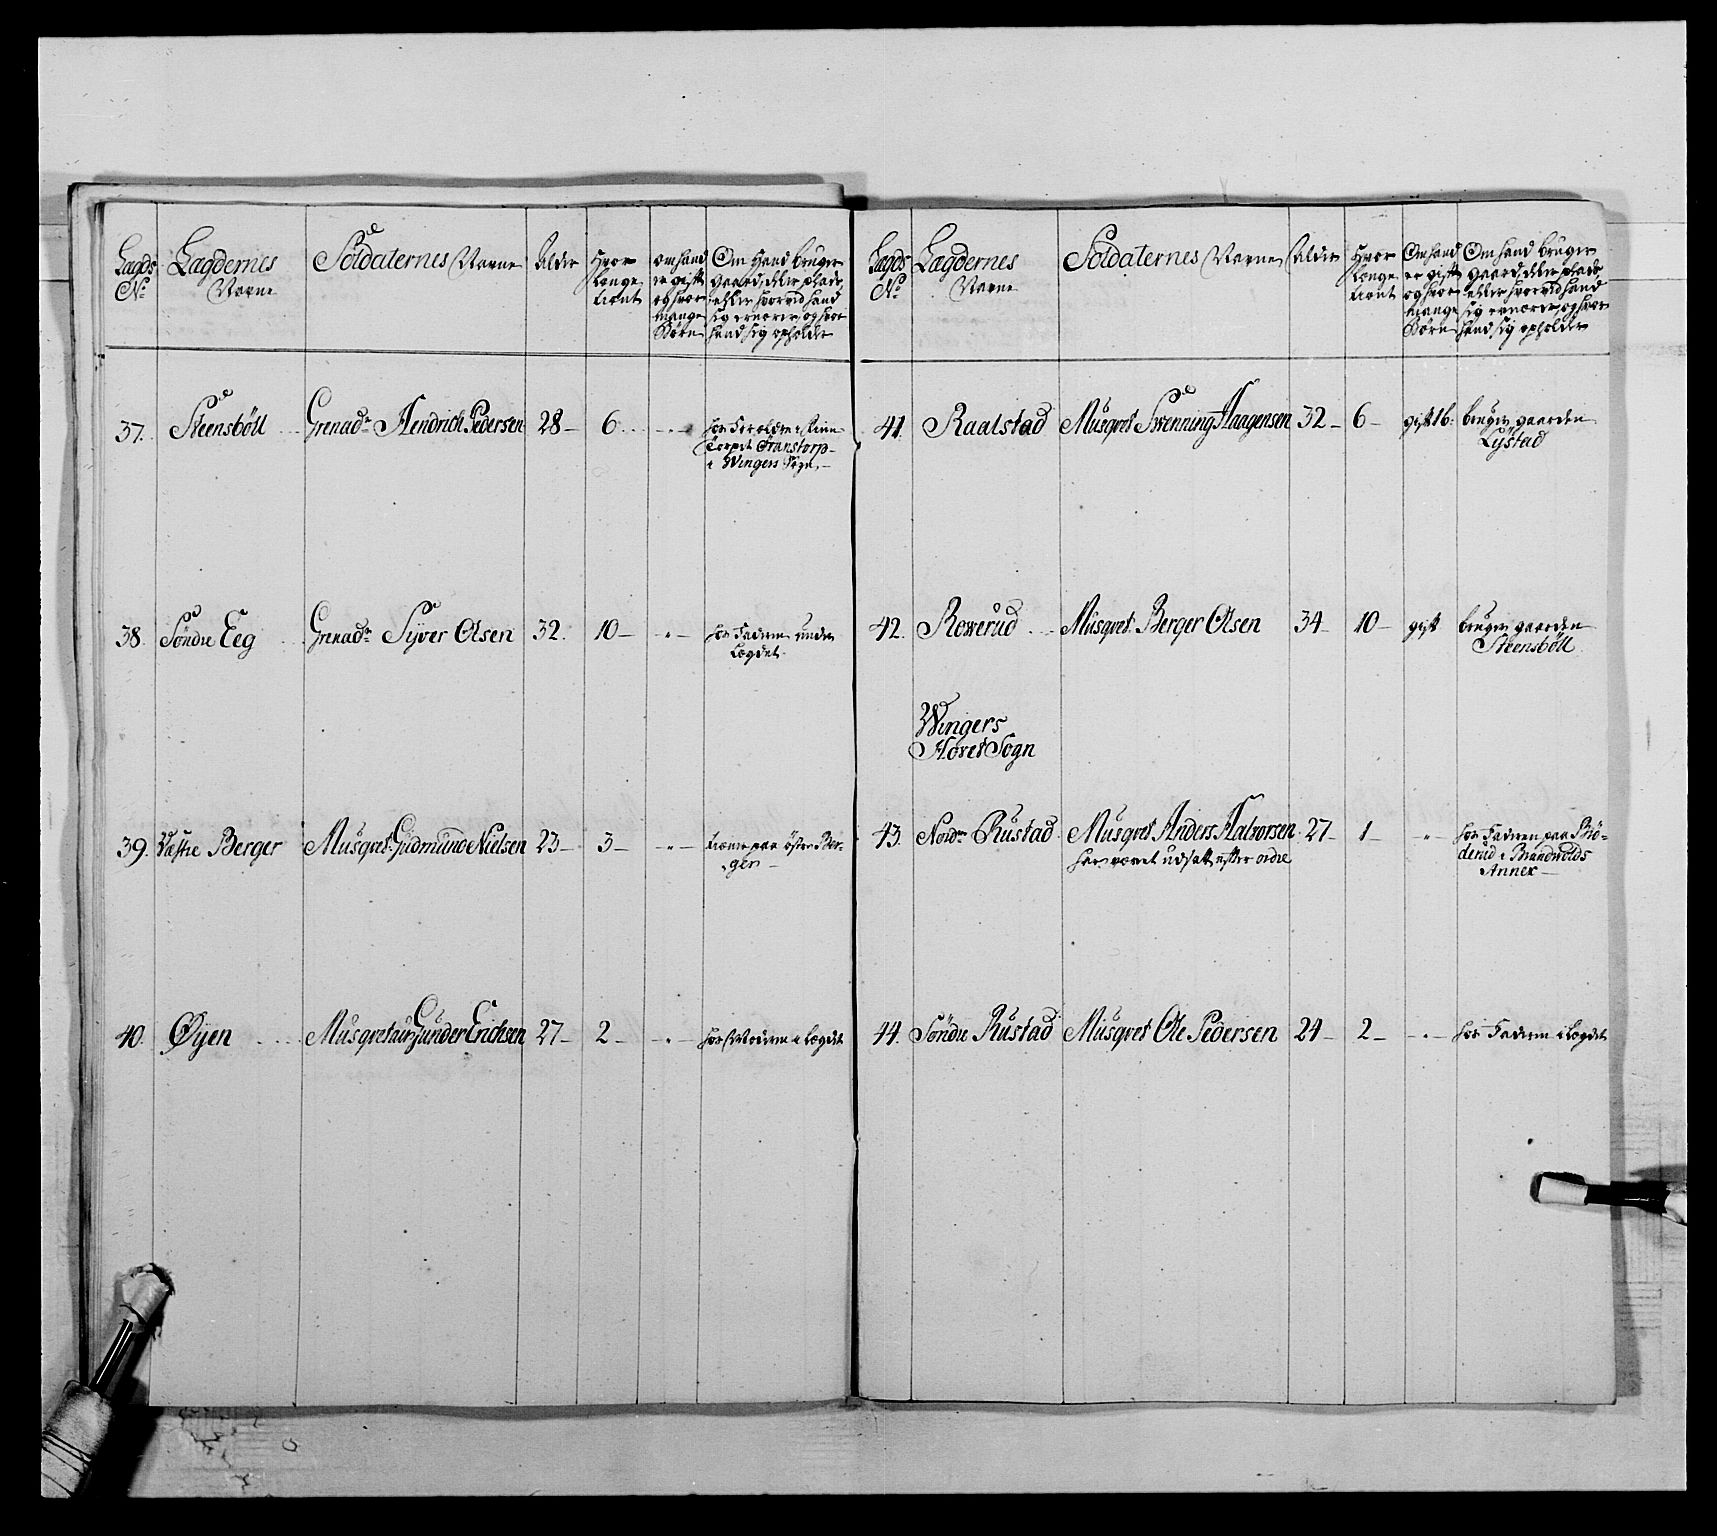 Lagds
No
Lagdernes
Navne
Soldaternes Navne
Alder
Hvor
Længe
tient
om hand
er gift
og hvor
mange
Börn
Om Hand bruger
gaard, eller plads,
eller hvorved hand
sig ernærer, og hvor
hand sig opholder
37. Steensböll Grenadr Hendrich Pedersen 28 - 6 - " -
hos Forældrene
Torpet Transtorp
i Wingers Sogn. -
38. Söndre Eeg Grenadr Syver Olsen 32. 10 - " -
hos Faderen under
Lægdet.
39. Væstre Berger Musqret. Gudmund Nielsen 23 - 3 - " -
tiener paa östre Ber-
gen -
40. Øyen Musqretair Gunder Erichsen 27 - 2 - " -
hos Moderen i Lægdet
Lagds
No
Lagdernes
Navne
Soldaternes Navne
Alder
Hvor
Længe
tient
Om hand
er gift
og hvor
mange
Börn
Om hand bruger
gaard, eller plads
eller hvorved hand
sig ernærer, og hvor
hand sig opholder
41. Raalstad Musqret Swenning Haagensen 32 - 6 - gift 1 b. bruger gaarden
Lystad
42. Rowerud Musqret. Berger Olsen 34 - 10 - gift bruger gaarden
Steensböll
Wingers
Hovet Sogn
43. Nordre Rustad Musqret Anders Halvorsen 27 - 1 - "
har været udsatt efter ordre
hos Faderen paa Brö-
derud i Brandwolds
Annex -
44. Söndre Rustad Musqret Ole Pedersen 24 - 2 - - " - hos Faderen i Lægdet